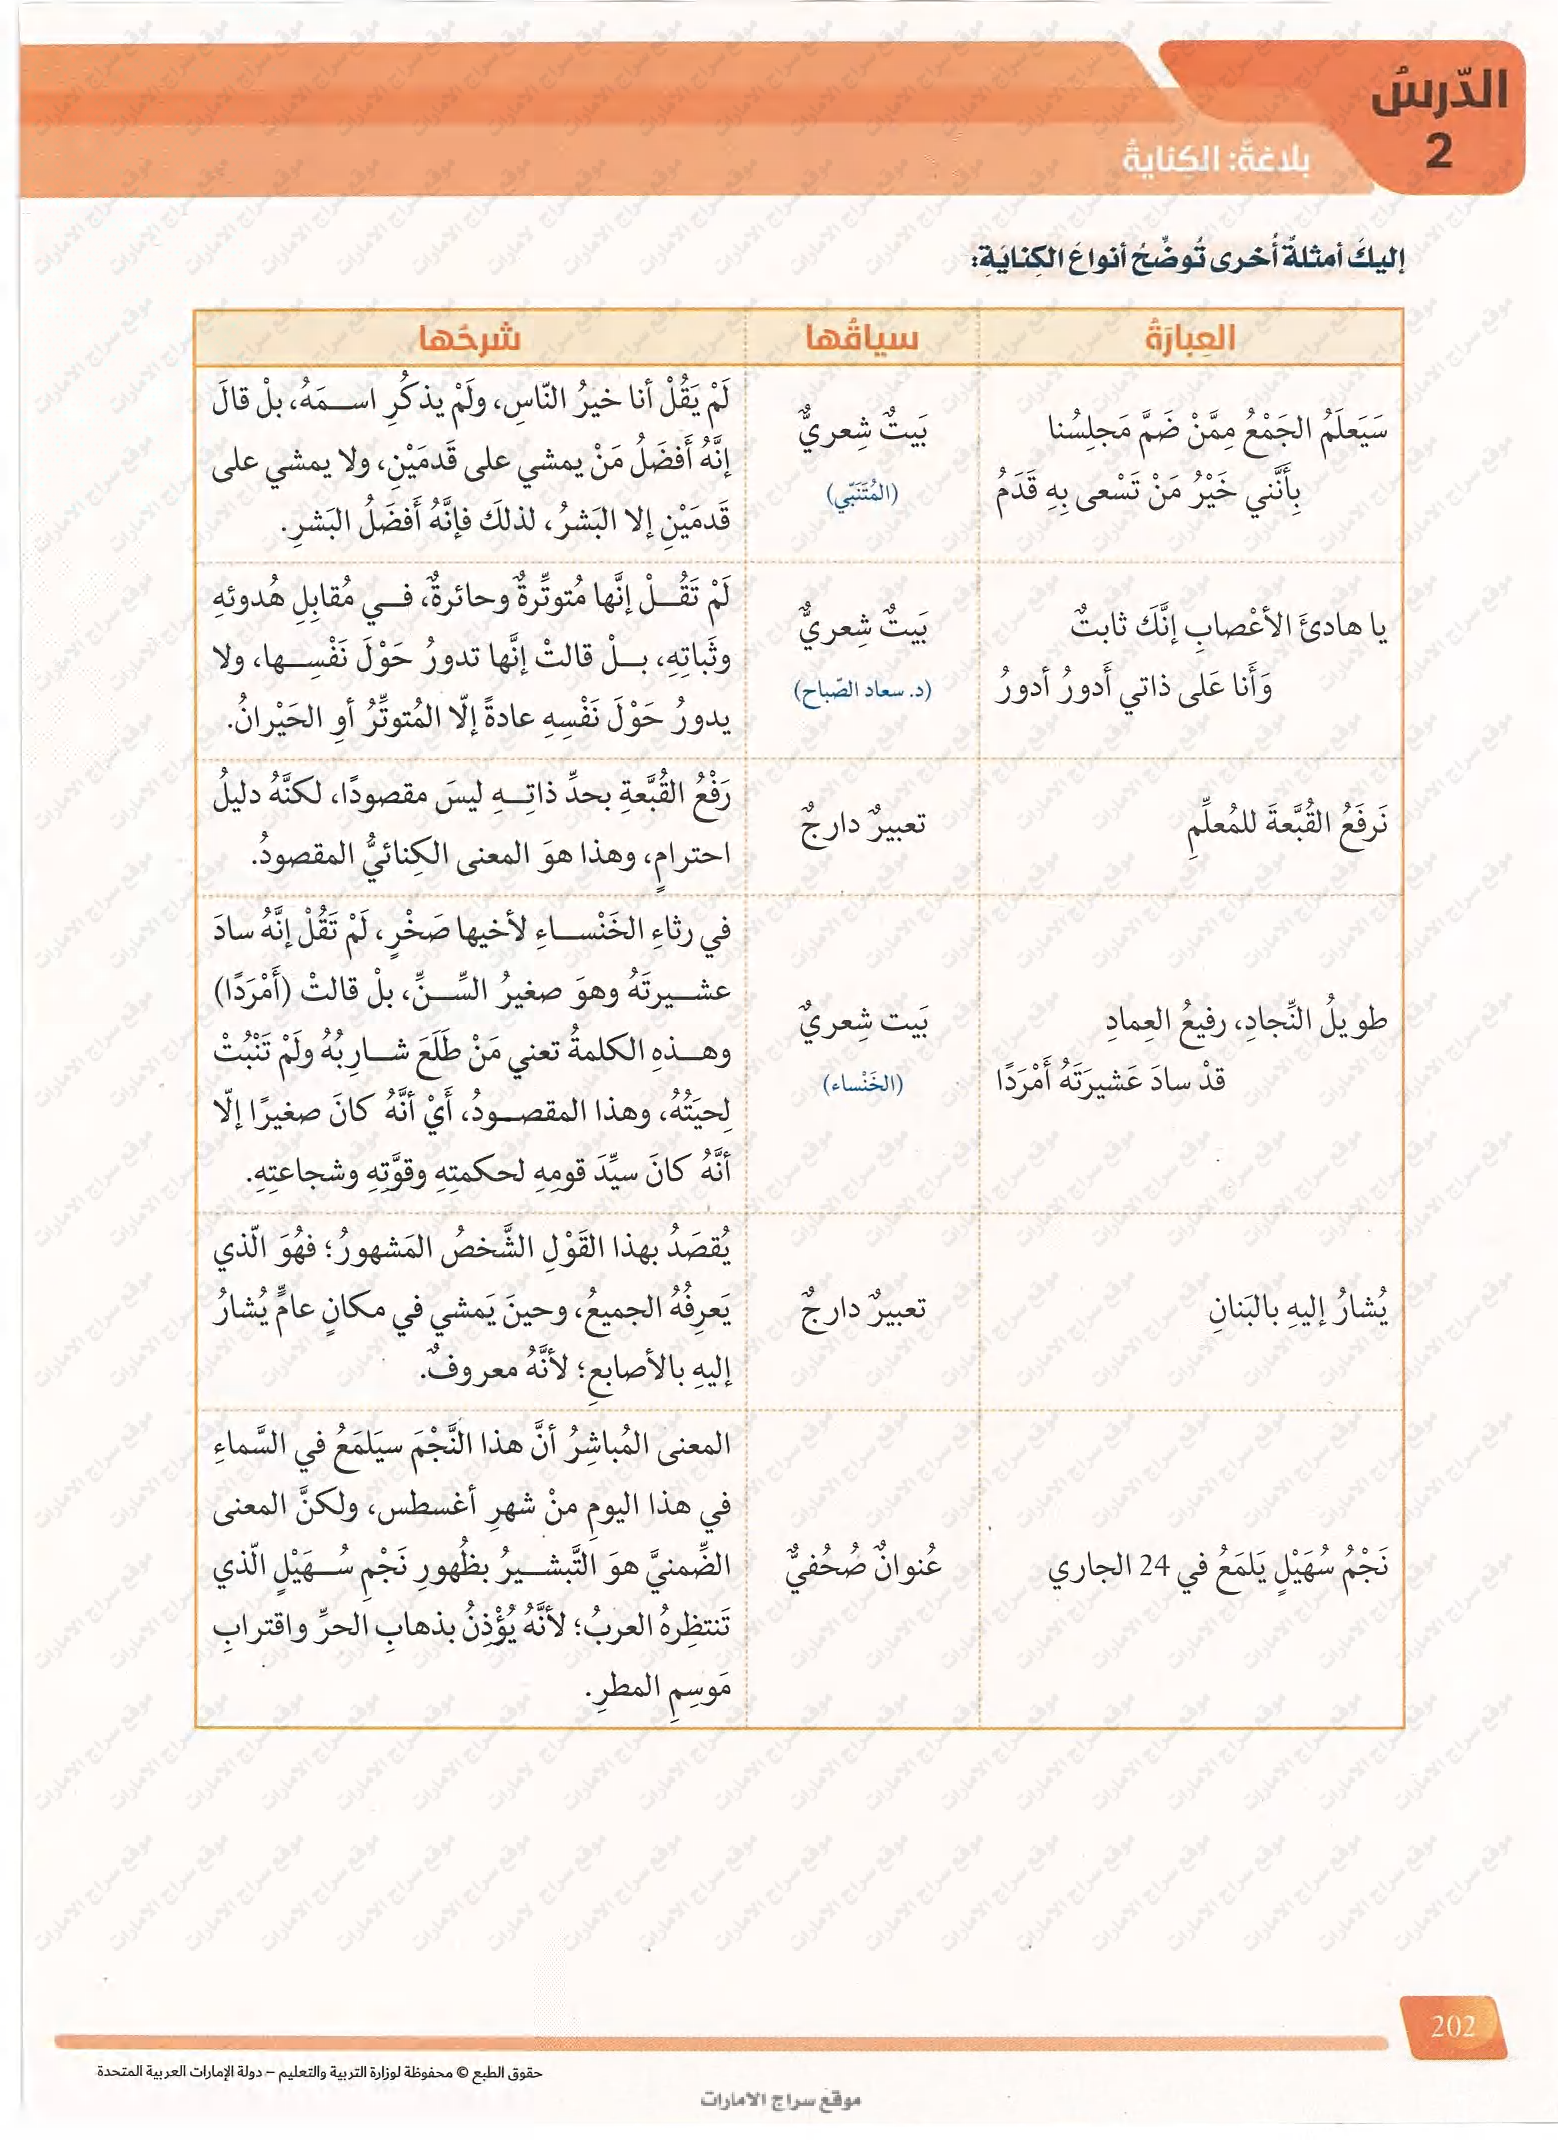 الدّرسُ
2
بلاغةٌ: الكنايةُ
إليكَ أمثلةً أُخرى تُوضِّحُ أنواعَ الكِنايَةِ:
العِبارَةُ
سياقُها
شرحُها
سَيَعلَمُ الجَمْعُ مِمَّنْ ضَمَّ مَجلِسُنا
بِأَنَّني خَيْرُ مَنْ تَسْعى بِهِ قَدَمُ
بَيتٌ شِعريٌّ
(المُتَنَبّي)
لَمْ يَقُلْ أنا خيرُ النّاسِ، ولَمْ يذكُرِ اسمَهُ، بلْ قالَ
إنَّهُ أَفضَلُ مَنْ يمشي على قَدمَيْنِ، ولا يمشي على
قَدمَيْنِ إلا البَشرُ، لذلكَ فإنَّهُ أَفضَلُ البَشرِ.
يا هادئَ الأعْصابِ إنَّكَ ثابتٌ
وَأَنا عَلى ذاتي أَدورُ أدورُ
بَيتٌ شِعريٌّ
(د. سعاد الصّباح)
لَمْ تَقُلْ إنَّها مُتوتِّرةٌ وحائرةٌ، في مُقابِلِ هُدوئهِ
وثَباتِهِ، بلْ قالتْ إنَّها تدورُ حَوْلَ نَفْسِها، ولا
يدورُ حَوْلَ نَفْسِهِ عادةً إلّا المُتوتِّرُ أوِ الحَيْرانُ.
نَرفَعُ القُبَّعةَ للمُعلِّمِ
تعبيرٌ دارجٌ
رَفْعُ القُبَّعةِ بحدِّ ذاتِهِ ليسَ مقصودًا، لكنَّهُ دليلُ
احترامٍ، وهذا هوَ المعنى الكِنائيُّ المقصودُ.
طويلُ النِّجادِ، رفيعُ العِمادِ
قدْ سادَ عَشيرَتَهُ أَمْرَدًا
بَيت شِعريٌّ
(الخَنْساء)
في رثاءِ الخَنْساءِ لأخيها صَخْرٍ، لَمْ تَقُلْ إنَّهُ سادَ
عشيرتَهُ وهوَ صغيرُ السِّنِّ، بلْ قالتْ (أَمْرَدًا)
وهذهِ الكلمةُ تعني مَنْ طَلَعَ شارِبُهُ ولَمْ تَنْبُتْ
لِحيَتُهُ، وهذا المقصودُ، أَيْ أنَّهُ كانَ صغيرًا إلّا
أنَّهُ كانَ سيِّدَ قومِهِ لحكمتِهِ وقوَّتِهِ وشجاعتِهِ.
يُشارُ إليهِ بالبَنانِ
تعبيرٌ دارجٌ
يُقصَدُ بهذا القَوْلِ الشَّخصُ المَشهورُ؛ فهُوَ الّذي
يَعرِفُهُ الجميعُ، وحينَ يَمشي في مكانٍ عامٍّ يُشارُ
إليهِ بالأصابعِ؛ لأنَّهُ معروفٌ.
نَجْمُ سُهَيْلٍ يَلمَعُ في 24 الجاري
عُنوانٌ صُحُفيٌّ
المعنى المُباشِرُ أنَّ هذا النَّجْمَ سيَلمَعُ في السَّماءِ
في هذا اليومِ منْ شهرِ أغسطس، ولكنَّ المعنى
الضِّمنيَّ هوَ التَّبشيرُ بظُهورِ نَجْمِ سُهَيْلٍ الّذي
تَنتظِرهُ العربُ؛ لأنَّهُ يُؤْذِنُ بذهابِ الحرِّ واقترابِ
مَوسِمِ المطرِ.
202
حقوق الطبع © محفوظة لوزارة التربية والتعليم – دولة الإمارات العربية المتحدة
موقع سراج الامارات